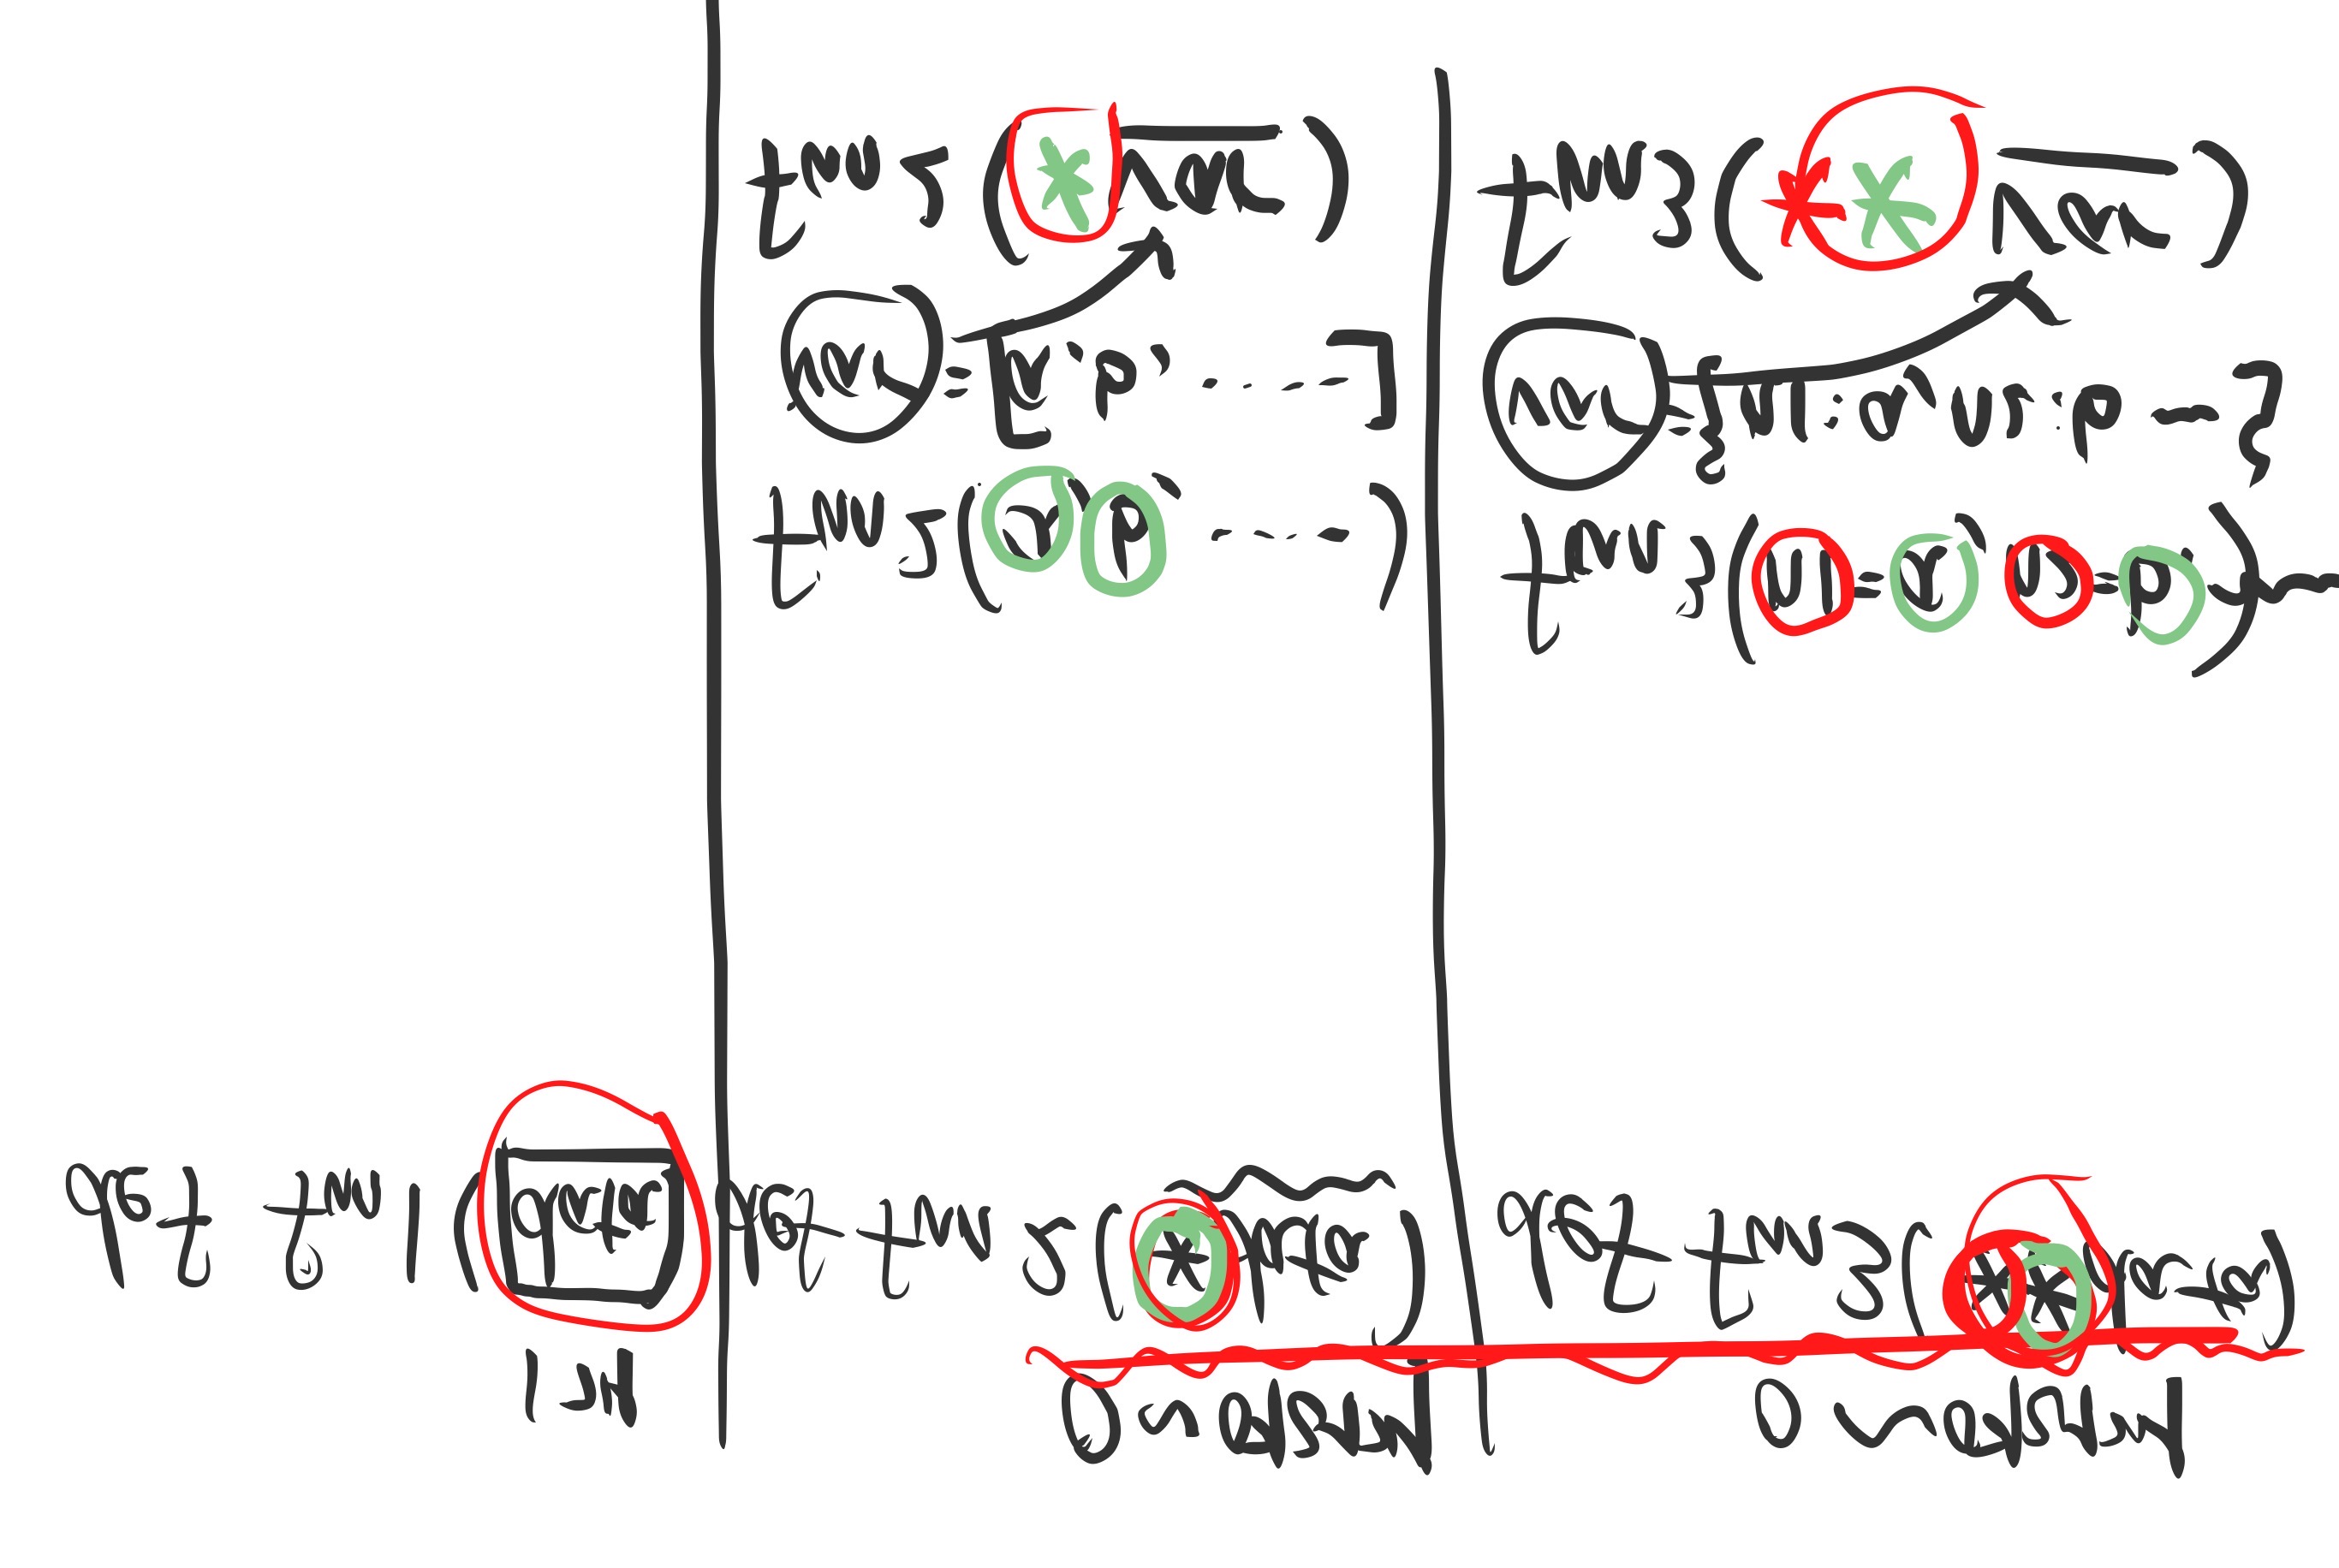 1개
def fn1(data)
0~여러개
def fn2(*data)
fn2(a, b, ----)
var = [a, b, ----]
fn2(*var)
0~여러개
def fn3(**data)
fn3(n1=a, n2=b, ~~)
var = {n1:a, n2:b ~}
fn3(**var)